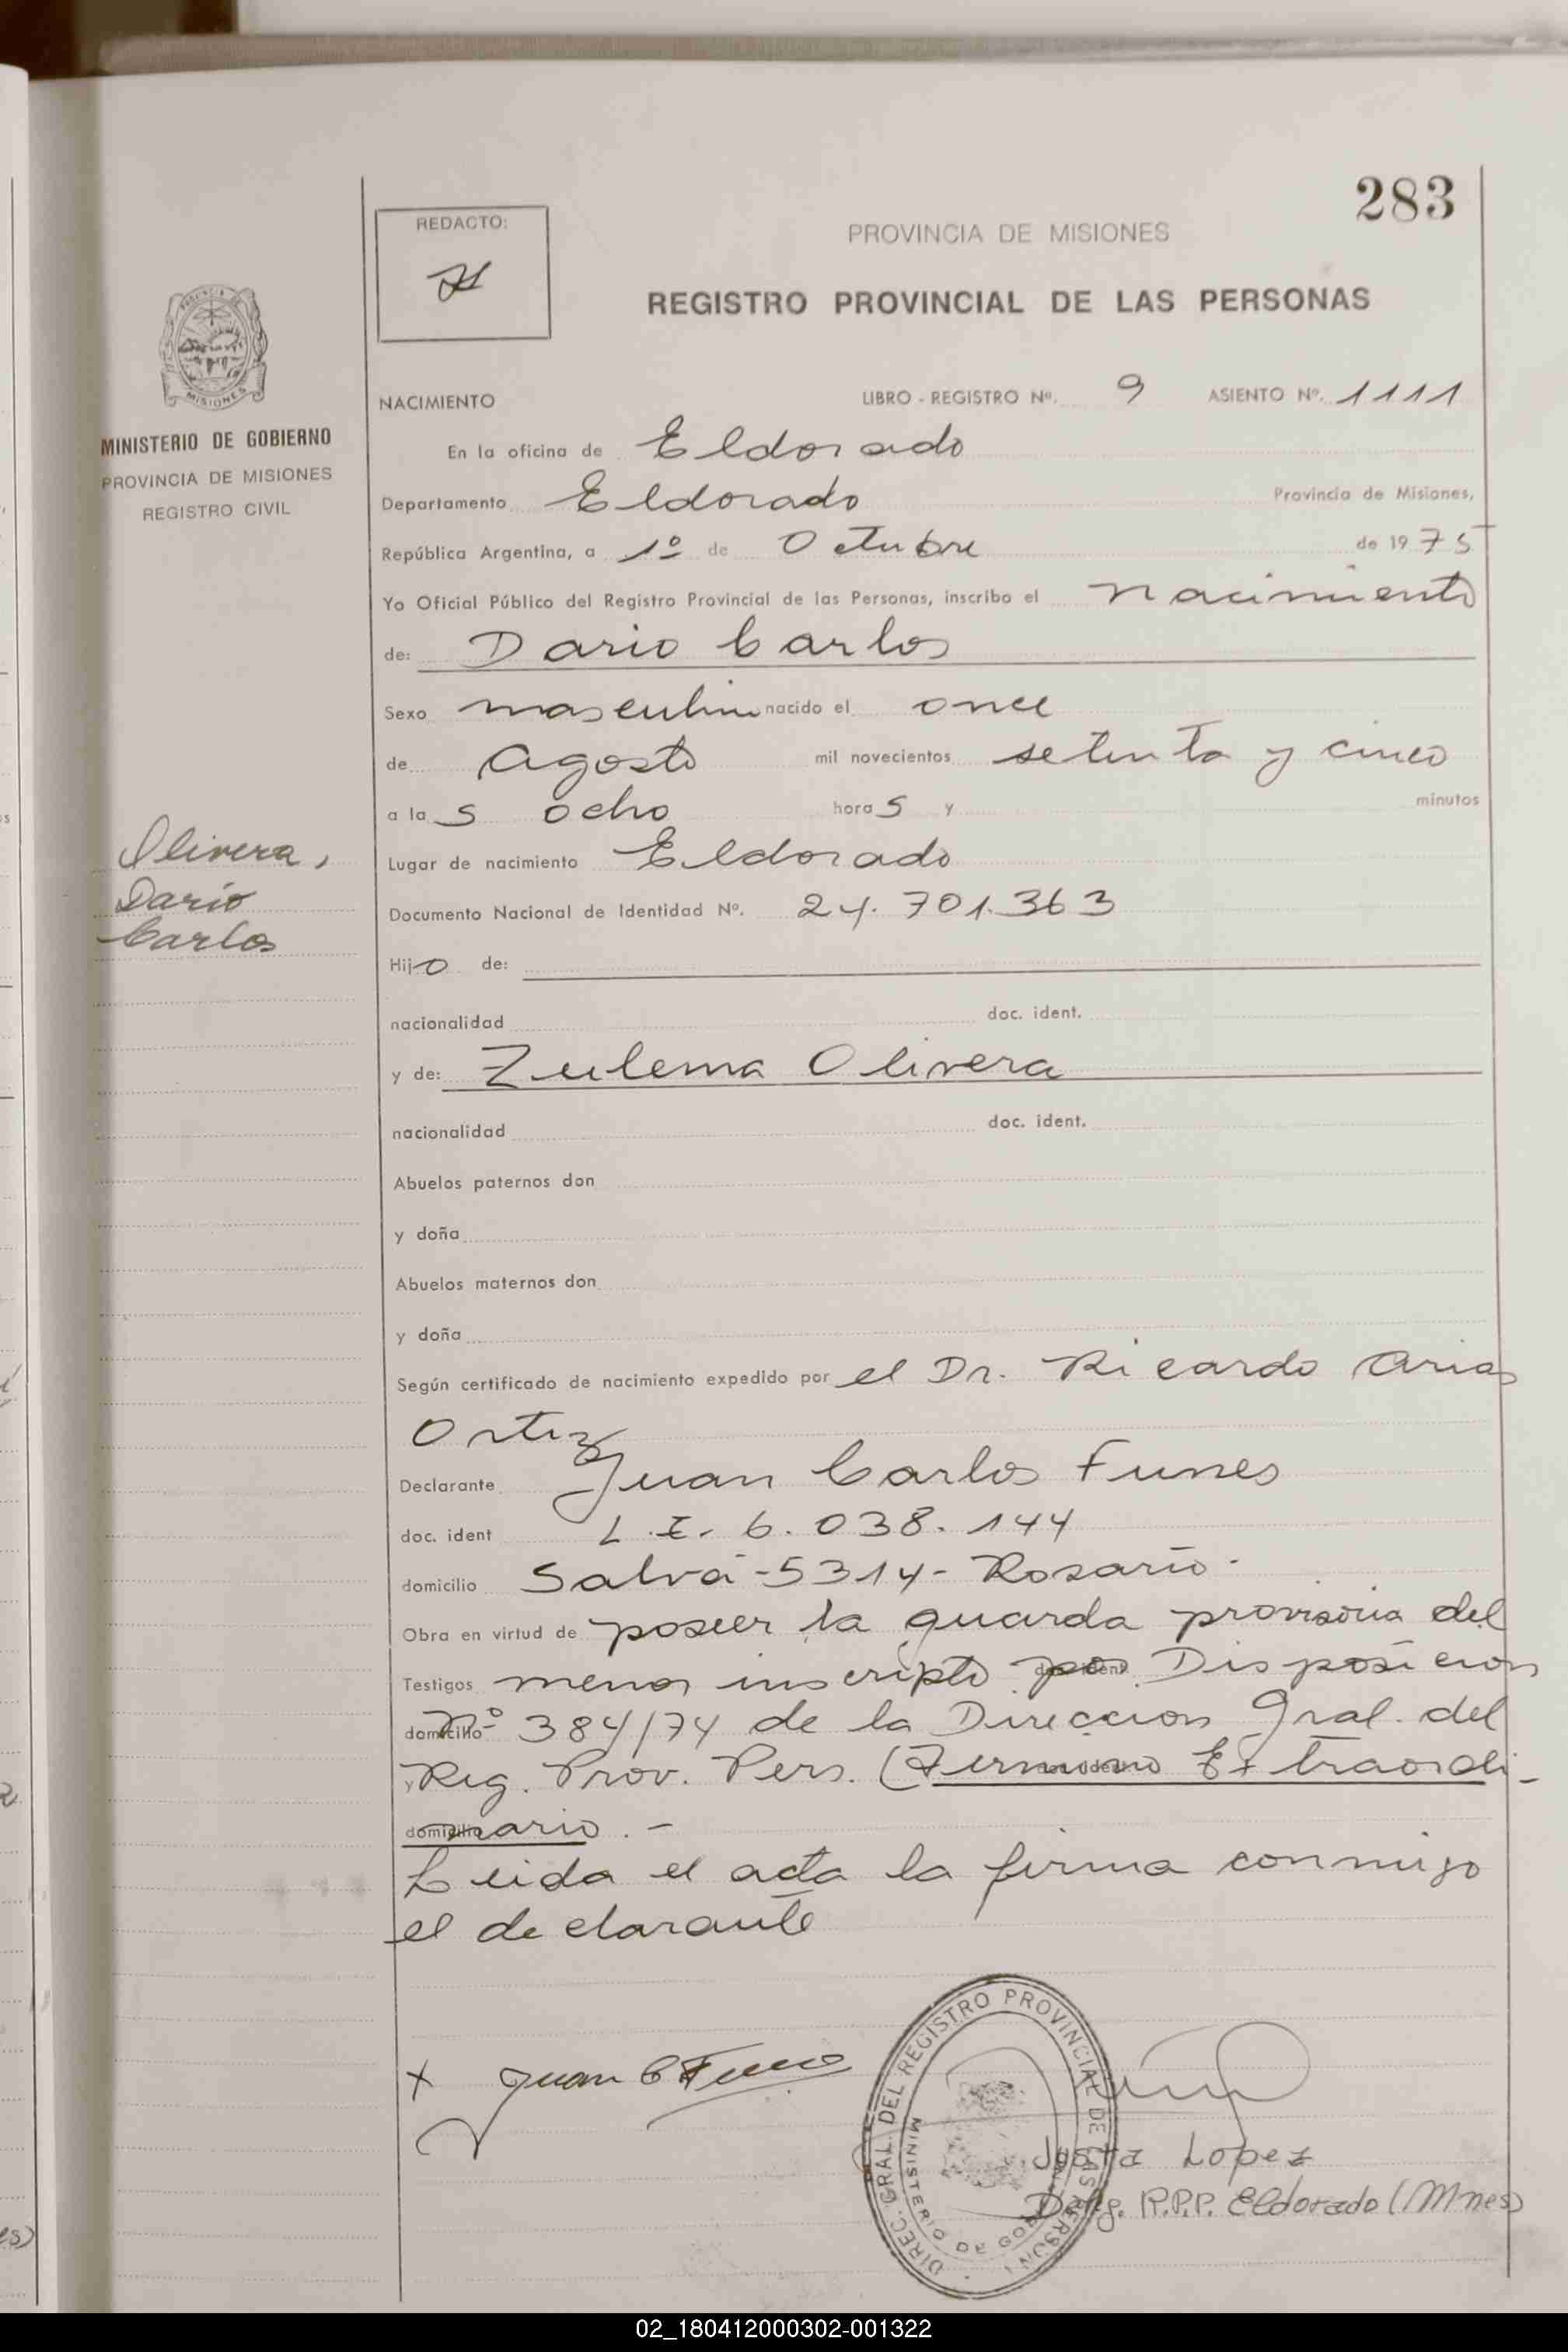 283
REDACTO:
PROVINCIA DE MISIONES
REGISTRO PROVINCIAL DE LAS PERSONAS
MISIONES
MINISTERIO DE GOBIERNO
PROVINCIA DE MISIONES
REGISTRO CIVIL
NACIMIENTO LIBRO - REGISTRO Nº. 9 ASIENTO Nº. 1111
En la oficina de Eldorado
Departamento Eldorado Provincia de Misiones,
República Argentina, a 1º de Octubre de 1975
Yo Oficial Público del Registro Provincial de las Personas, inscribo el nacimiento
de: Dario Carlos
Sexo masculino nacido el once
de Agosto mil novecientos setenta y cinco
a las ocho horas y minutos
Olivera,
Dario
Carlos
Lugar de nacimiento Eldorado
Documento Nacional de Identidad Nº. 24.701.363
Hijo de:
nacionalidad doc. ident.
y de: Zulema Olivera
nacionalidad doc. ident.
Abuelos paternos don
y doña
Abuelos maternos don
y doña
Según certificado de nacimiento expedido por el Dr. Ricardo Arias
Ortiz
Declarante Juan Carlos Funes
doc. ident L.E. 6.038.144
domicilio Salvá-5314- Rosario-
Obra en virtud de poseer la guarda provisoria del
Testigos menor inscripto por Disposicion
domicilio Nº 384/74 de la Direccion Gral. del
y Reg. Prov. Pers. (Termino Extraordi-
domicilio nario.-
Leida el acta la firma conmigo
el declarante
x Juan C Funes
DIREC. GRAL. DEL REGISTRO PROVINCIAL DE LAS PERSONAS
MINISTERIO DE GOBIERNO
Justa Lopez
Deleg. R.P.P. Eldorado (Mnes)
02_180412000302-001322